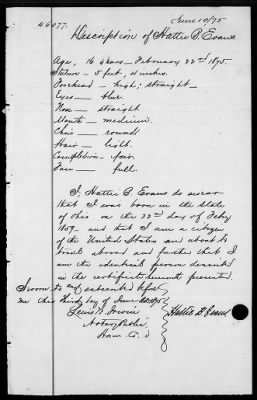 46077.
June 10/75
Description of Hattie B Evans
Age, 16 years - February 22nd 1875.
Stature - 5 feet, 4 inches.
Forehead - high; straight -
Eyes - blue.
Nose - straight.
Mouth - medium.
Chin - round.
Hair - light.
Complexion - fair.
Face - full.
I, Hattie B. Evans do swear
that I was born in the state
of Ohio on the 22nd day of Feby
1859 and that I am a citizen
of the United States and about to
travel abroad and further that I
am the identical person described
in the certificate herewith presented.
Sworn to and subscribed before
me this third day of June 1875
Hattie B. Evans
Lewis W. Irwin
Notary Public
Ham Co. O